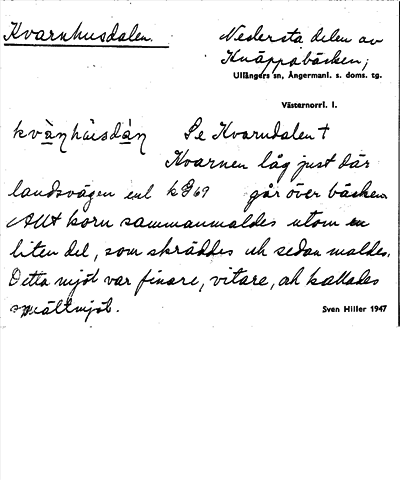 Kvarnhusdalen.
Nedersta delen av
Knäppabäcken;
Ullångers sn, Ångermanl. s. doms. tg.
Västernorrl. l.
kvà̱ṇhùsdá̱ṇ Se Kvarndalen †
Kvarnen låg just där
landsvägen enl kg 69 går över bäcken
Allt korn sammanmaldes utom en
liten del, som skräddes och sedan maldes.
Detta mjöl var finare, vitare, och kallades
smältmjöl.
Sven Hiller 1947